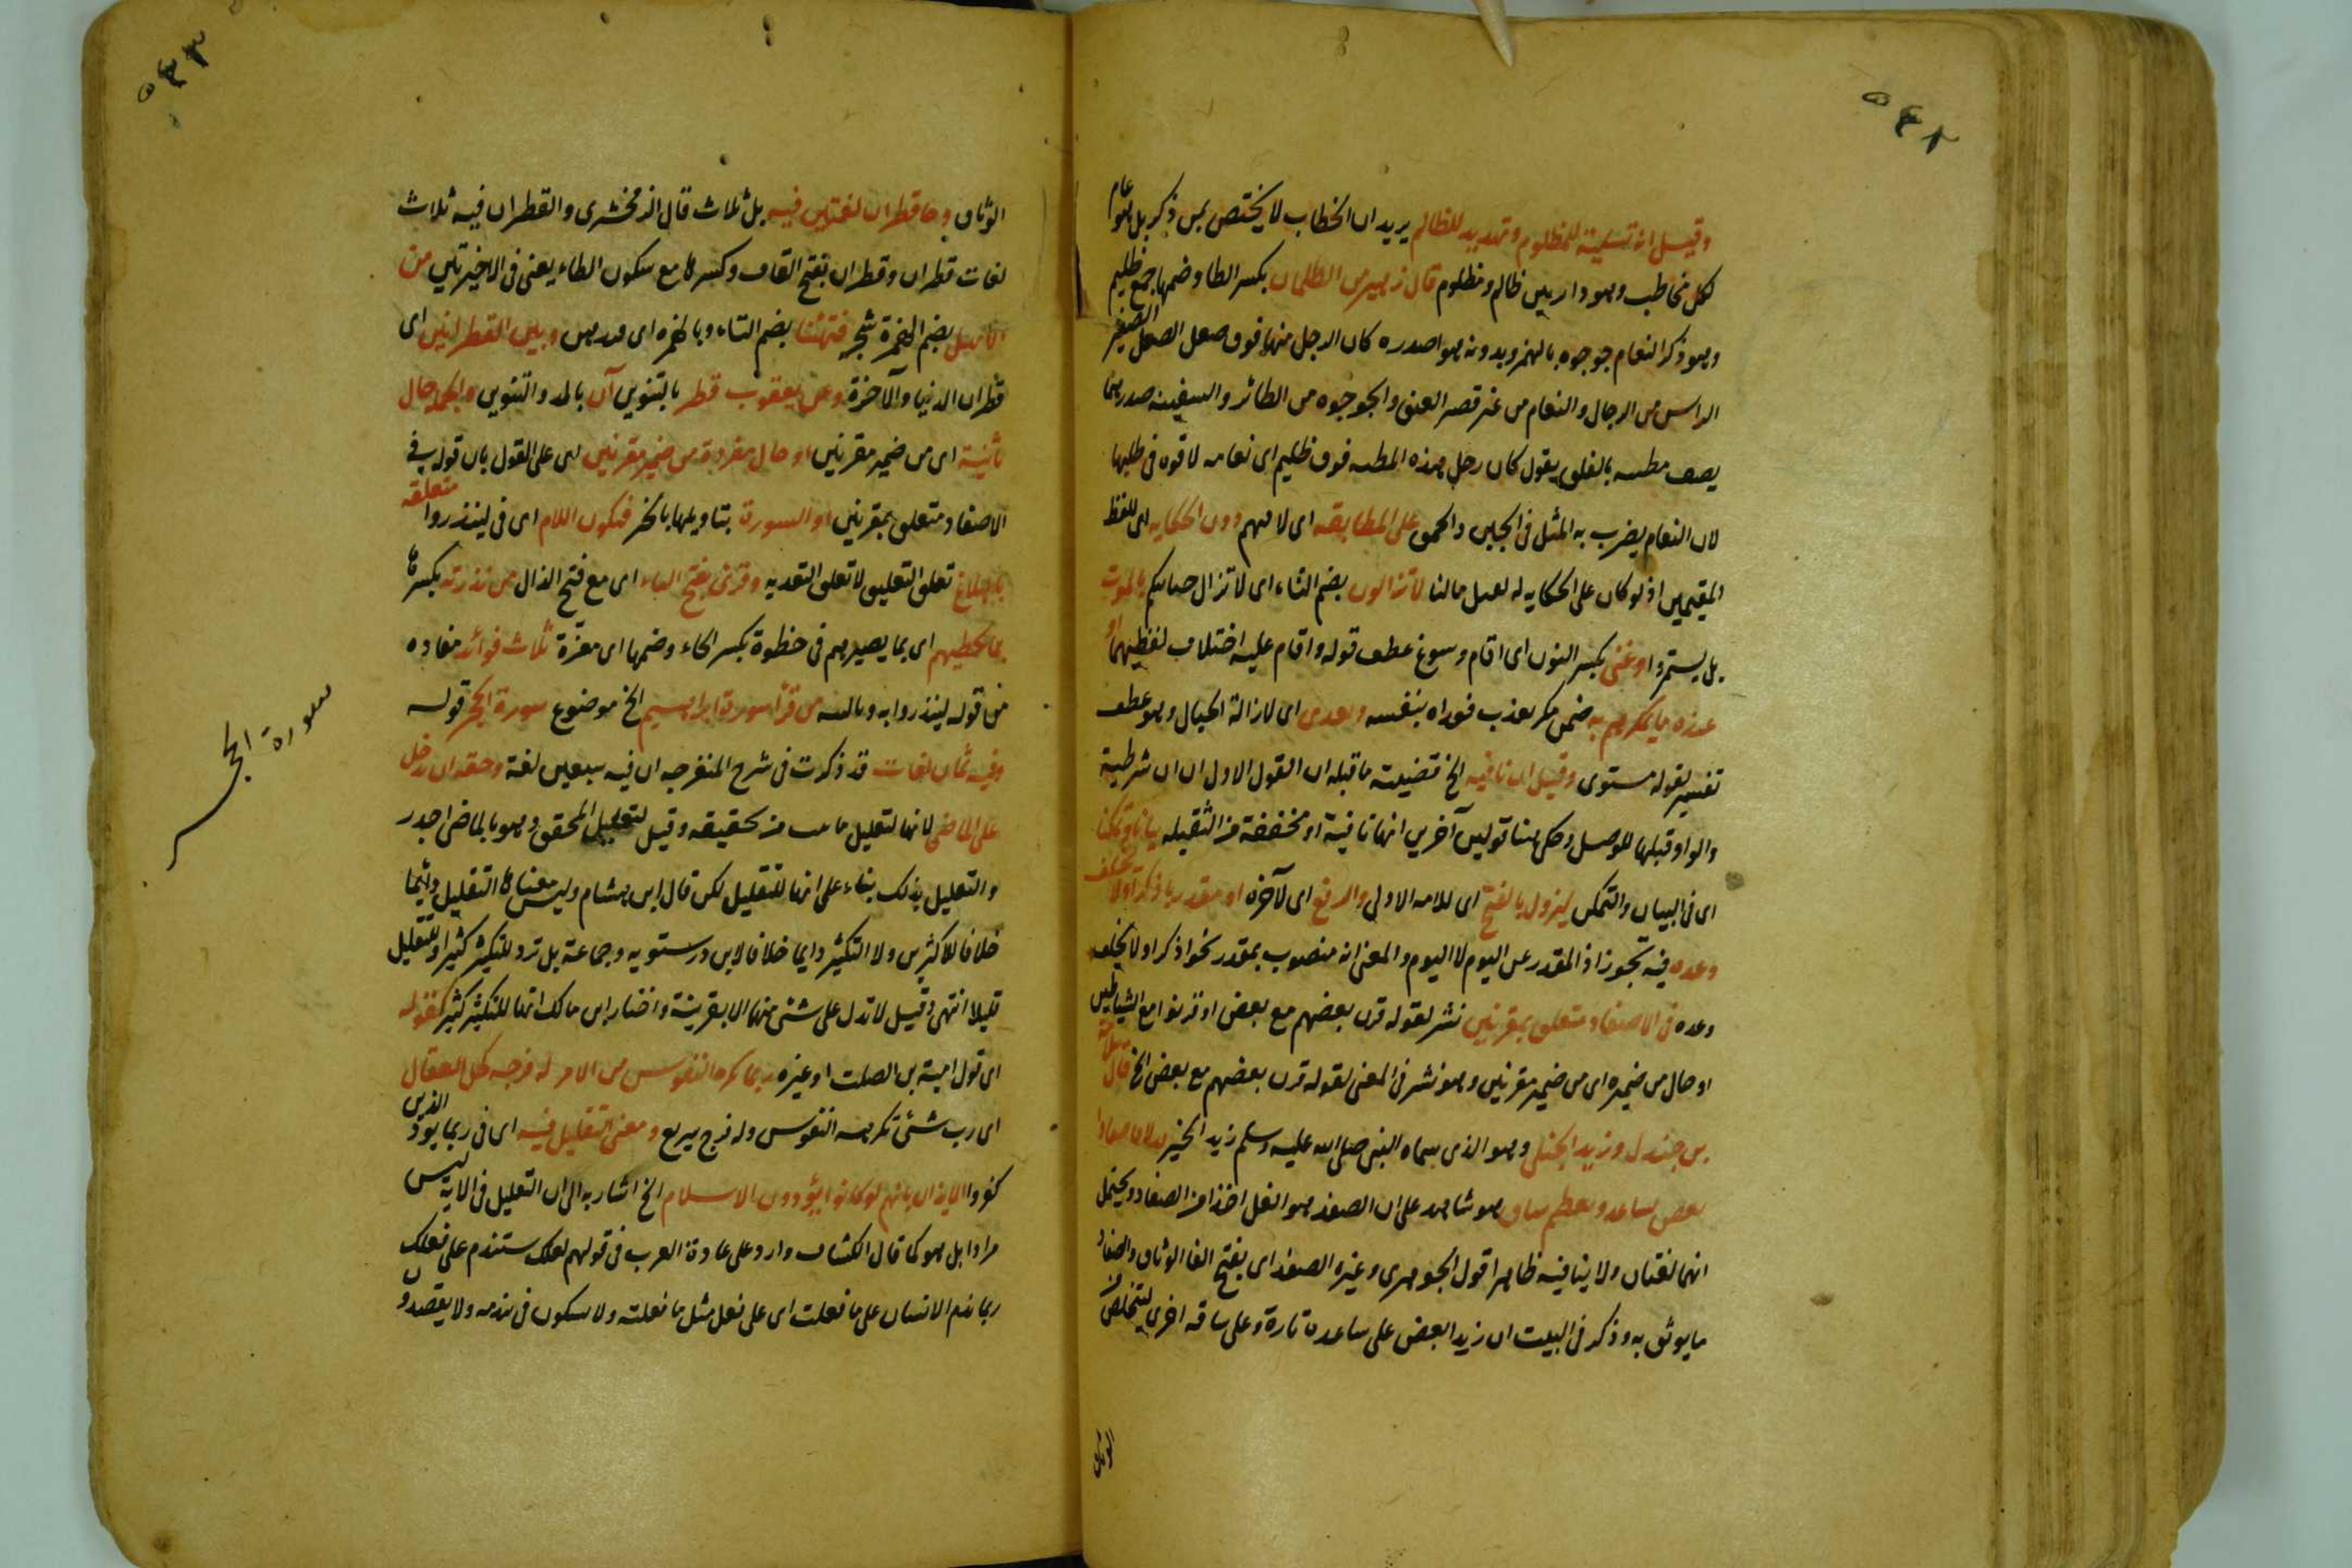 ٥٤٢
وقيل انه تسلية للمظلوم وتهديد للظالم يريد ان الخطاب لا يختص بمن ذكر بل هو عام
لكل مخاطب وهو داربين ظالم ومظلوم قال زهير من الظلمان بكسر الظا وضمها جمع ظليم
وهو ذكر النعام جوجوه بالهمز وبدونه هوا صدره كان الرجل منها فوق صعل الصعل الصغير
الراس من الرجال والنعام من غير قصر العنق والجوجوه من الطائر والسفينه صدرهما
يصف مطيه بالقلق يقول كان رحل هذه المطيه فوق ظليم اى نعامه لا قوه فى
لان النعام يضرب به المثل فى الجبن والحمق على المطابقه اى لا دون الحكايه اى للفظ
المقسمين اذ لو كان على الحكايه له لقيل مالنا لا تزالون بضم التاء اى لا تزال حياتكم بالموت
بل يستمر او غنى بكسر النون اى اقام وسوغ عطف قوله واقام عليه اختلاف لفظيهما او
عنده ما يمكرهم به ضمن مكر يعذب فعداه بنفسه وبعدى اى لازالة الجبال وهو عطف
تفسير لقوله مستوى وقيل ان نافيه الخ قضيته ما قبله ان القول الاول ان ان شرطية
والواو قبلها للوصل وحكى هنا قولين آخرين انها نافية او مخففة من الثقيله
اى فى البيان والتمكن لتزول بالفتح اى للامه الاولى والرفع اى لآخره او مقدر باذكر اولا يخلف
وعده فيه تجوز اذ المقدر عن اليوم لا اليوم والمعنى انه منصوب بمقدر نحو اذكر او لا يخلف
وعده فى الاصفاد متعلق بمقرنين نشر لقوله قرن بعضهم مع بعض او قرنوا مع الشياطين
او حال من ضميره اى من ضمير مقرنين وهو نشر فى المعنى لقوله قرن بعضهم مع بعض الخ قال سلامة
بن جندل وزيد الخيل وهو الذى سماه النبى صلى الله عليه وسلم زيد الخير صفادا
يعض بساعد وبعظم ساق هو شاهد على ان الصفد هو الغل اخذا من الصفاد ويحتمل
انهما لغتان ولا ينافيه ظاهرا قول الجوهرى وغيره الصفد اى بفتح الفا الوثاق والصفاد
ما يوثق به وذكر فى البيت ان زيدا بعض على ساعده تارة وعلى ساقه اخرى ليتخلص من
الوثاق
٥٤٣
الوثاق وجا قطران لغتين فيه بل ثلاث قال الزمخشرى والقطران فيه ثلاث
لغات قطران وقطران بفتح القاف وكسرها مع سكون الطاء يعنى فى الاخيرتين من
الابهل بضم الهمزة شجر فتهنئا بضم التاء وبالهمزه اى وبين القطرانين اى
قطران الدنيا والآخرة وعن يعقوب قطر بالتنوين آن بالمد والتنوين والجملة حال
ثانية اى من ضمير مقرنين او حال مفردة من ضمير مقرنين اى على القول بان قوله فى
الاصفاد متعلق بمقرنين او السورة بتاويلها بالخبر فتكون اللام اى فى لينذروا متعلقه
بالبلاغ تعلق التعليق لا تعلق التعديه وقرئ بفتح الياء اى مع فتح الذال من نذر به بكسرها
بما يحظيهم اى بما يصيرهم فى حظوة بكسر الحاء وضمها اى معزة ثلاث فوائد مفاده
من قوله لينذروا به وتالييه من قرأ سورة ابراهيم الخ موضوع سورة الحجر قوله
وفيه ثمان لغات قد ذكرت فى شرح المنفرجه ان فيه سبعين لغة وحقه ان يدخل
على الماضى لانها لتقليل ما من تحقيقه وقيل لتقليل المحقق وهو بالماضى اجدر
والتعليل بذلك بناء على انها للتقليل لكن قال ابن هشام وليس معناها التقليل دائما
خلافا للاكثرين ولا التكثير دائما خلافا لابن درستويه وجماعة بل ترد للتكثير كثيرا وللتقليل
قليلا انتهى وقيل لا تدل على شئ منهما الا بقرينة واختار ابن مالك انها للتكثير كثيرا كقوله
اى قول امية بن الصلت او غيره ربما تكره النفوس من الامر له فرجه كحل العقال
اى رب شئ تكرهه النفوس وله فرج سريع ومعنى التقليل فيه اى فى ربما يود الذين
كفروا الايذان بانهم لو كانوا يودون الاسلام الخ اشار به الى ان التقليل فى الاية ليس
مرادا بل هو كما قال الكشاف وارد على عادة العرب فى قولهم لعلك ستندم على فعلك
ربما ندم الانسان على ما فعلت اى على فعل مثل ما فعلته ولا يشكون فى تندمه ولا يقصدون
سورة الحجر